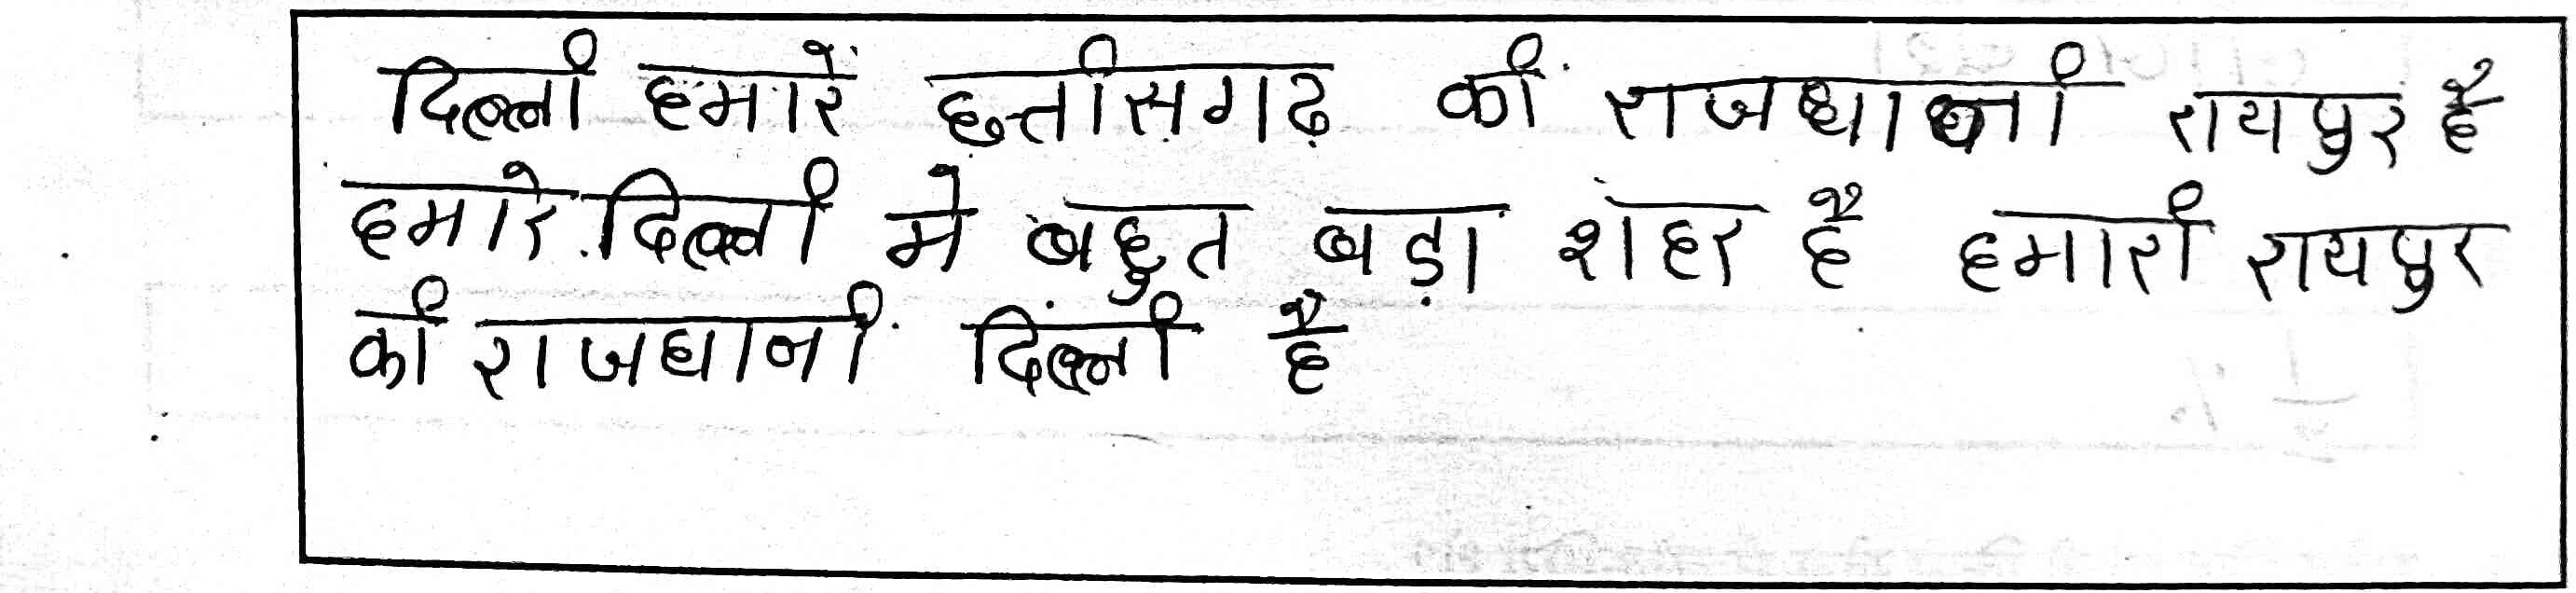 दिल्ली हमारे छत्तीसगढ़ की राजधानी रायपुर है
हमारे दिल्ली मे बहुत बड़ा शेहर है हमारी रायपुर
की राजधानी दिल्ली है